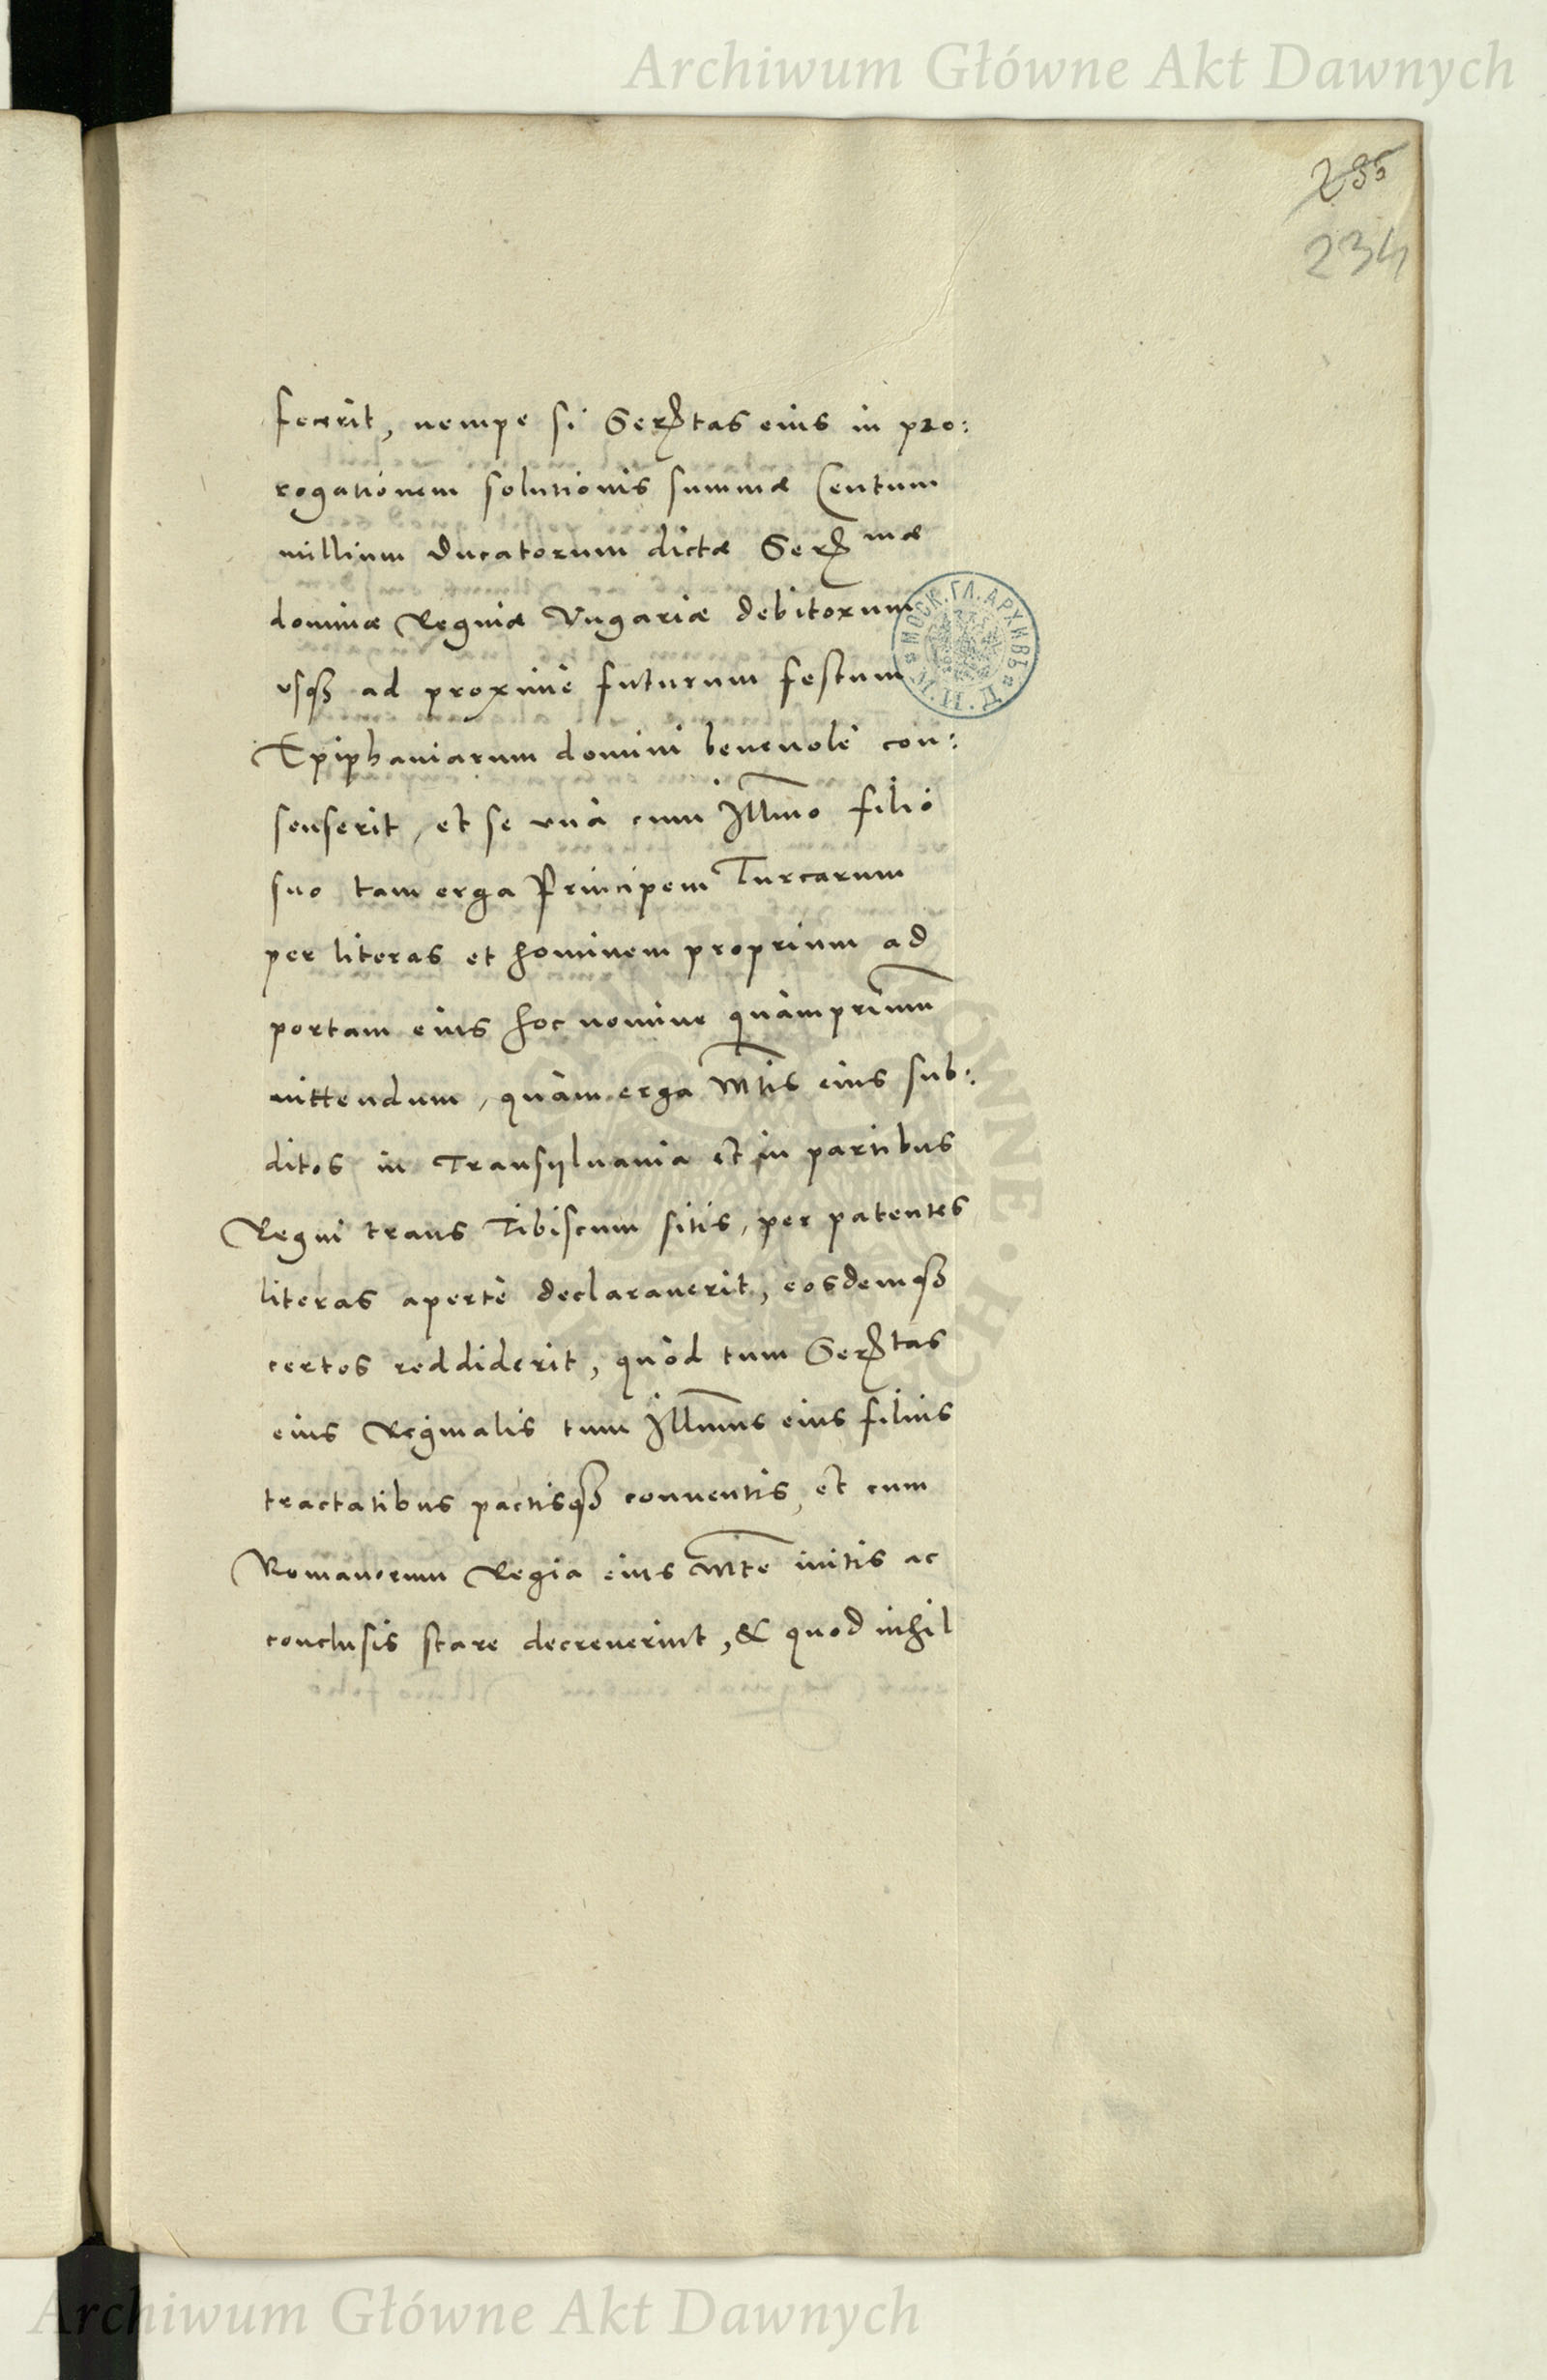 Archiwum Główne Akt Dawnych
235
234
fecerit, nempe si Serꝭtas eius in pro:
rogationem solutionis summæ Centum
millium Ducatorum dictæ Serꝭmæ
dominæ Reginæ Vngariæ debitorum
vsqꝫ ad proximè futurum festum
Epiphaniarum domini beneuolè con:
senserit, et se vnà cum Illmo filio
suo tam erga Principem Turcarum
per literas et hominem proprium ad
portam eius hoc nomine quàmprimum
mittendum, quàm erga Mtis eius sub:
ditos in Transyluania et in partibus
Regni trans Tibiscum sitis, per patentes
literas apertè declarauerit, eosdemqꝫ
certos reddiderit, quòd tum Serꝭtas
eius Reginalis tum Illmus eius filius
tractatibus pactisqꝫ conuentis, et cum
Romanorum Regia eius Mte initis ac
conclusis stare decreuerint, & quod nihil
МОСК. ГЛ. АРХИВЪ
М.И.Д.
Archiwum Główne Akt Dawnych